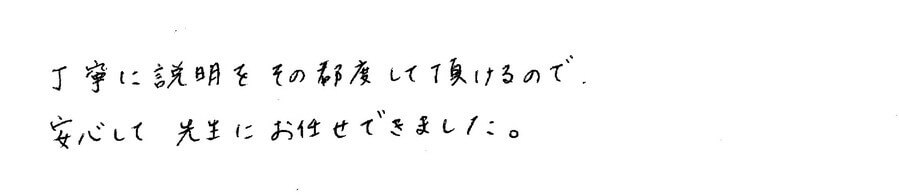 丁寧に説明をその都度して頂けるので、
安心して 先生にお任せできました。